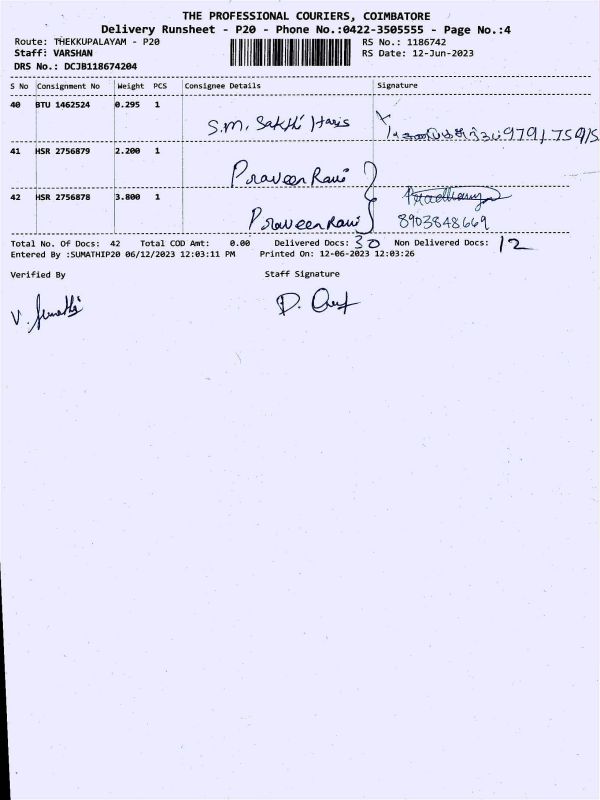 THE PROFESSIONAL COURIERS, COIMBATORE
Delivery Runsheet - P20 - Phone No.:0422-3505555 - Page No.:4
Route: THEKKUPALAYAM - P20 RS No.: 1186742
Staff: VARSHAN RS Date: 12-Jun-2023
DRS No.: DCJB118674204
S No Consignment No Weight PCS Consignee Details Signature
40 BTU 1462524 0.295 1
S.M. Sakthi Haris
41 HSR 2756879 2.200 1
Praveen Ravi
42 HSR 2756878 3.800 1
Praveen Ravi 8903848669
Total No. Of Docs: 42 Total COD Amt: 0.00 Delivered Docs: 30 Non Delivered Docs: 12
Entered By :SUMATHIP20 06/12/2023 12:03:11 PM Printed On: 12-06-2023 12:03:26
Verified By Staff Signature
V.